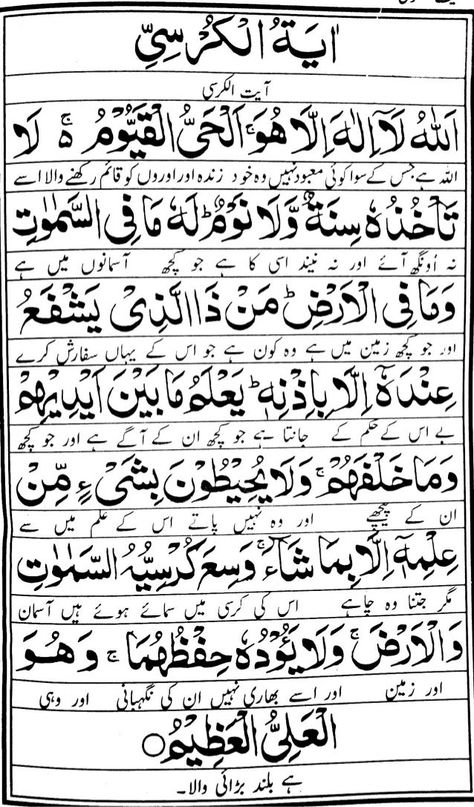 اٰيَةُ الْكُرْسِيِّ
آیت الکرسی
اَللهُ لَاۤ اِلٰهَ اِلَّا هُوَ ۚ اَلْحَیُّ الْقَیُّوْمُ ۚ۬ لَا
اللہ ہے جس کے سوا کوئی معبود نہیں وہ خود زندہ اور اوروں کو قائم رکھنے والا اسے
تَاْخُذُهٗ سِنَةٌ وَّلَا نَوْمٌ ؕ لَهٗ مَا فِی السَّمٰوٰتِ
نہ اونگھ آئے اور نہ نیند اسی کا ہے جو کچھ آسمانوں میں ہے
وَمَا فِی الْاَرْضِ ؕ مَنْ ذَا الَّذِیْ یَشْفَعُ
اور جو کچھ زمین میں ہے وہ کون ہے جو اس کے یہاں سفارش کرے
عِنْدَهٗۤ اِلَّا بِاِذْنِهٖ ؕ یَعْلَمُ مَا بَیْنَ اَیْدِیْهِمْ
بے اس کے حکم کے جانتا ہے جو کچھ ان کے آگے ہے اور جو کچھ
وَمَا خَلْفَهُمْ ۚ وَلَا یُحِیْطُوْنَ بِشَیْءٍ مِّنْ
ان کے پیچھے اور وہ نہیں پاتے اس کے علم میں سے
عِلْمِهٖۤ اِلَّا بِمَا شَآءَ ۚ وَسِعَ كُرْسِیُّهُ السَّمٰوٰتِ
مگر جتنا وہ چاہے اس کی کرسی میں سمائے ہوئے ہیں آسمان
وَالْاَرْضَ ۚ وَلَا یَـُٔوْدُهٗ حِفْظُهُمَا ۚ وَهُوَ
اور زمین اور اسے بھاری نہیں ان کی نگہبانی اور وہی
الْعَلِیُّ الْعَظِیْمُ ۝
ہے بلند بڑائی والا۔